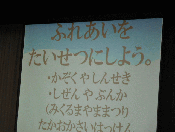 ふれあいを
たいせつにしよう。
・かぞくやしんせき
・しぜんやぶんか
(みくるまやままつり
たかおかさいはっけん